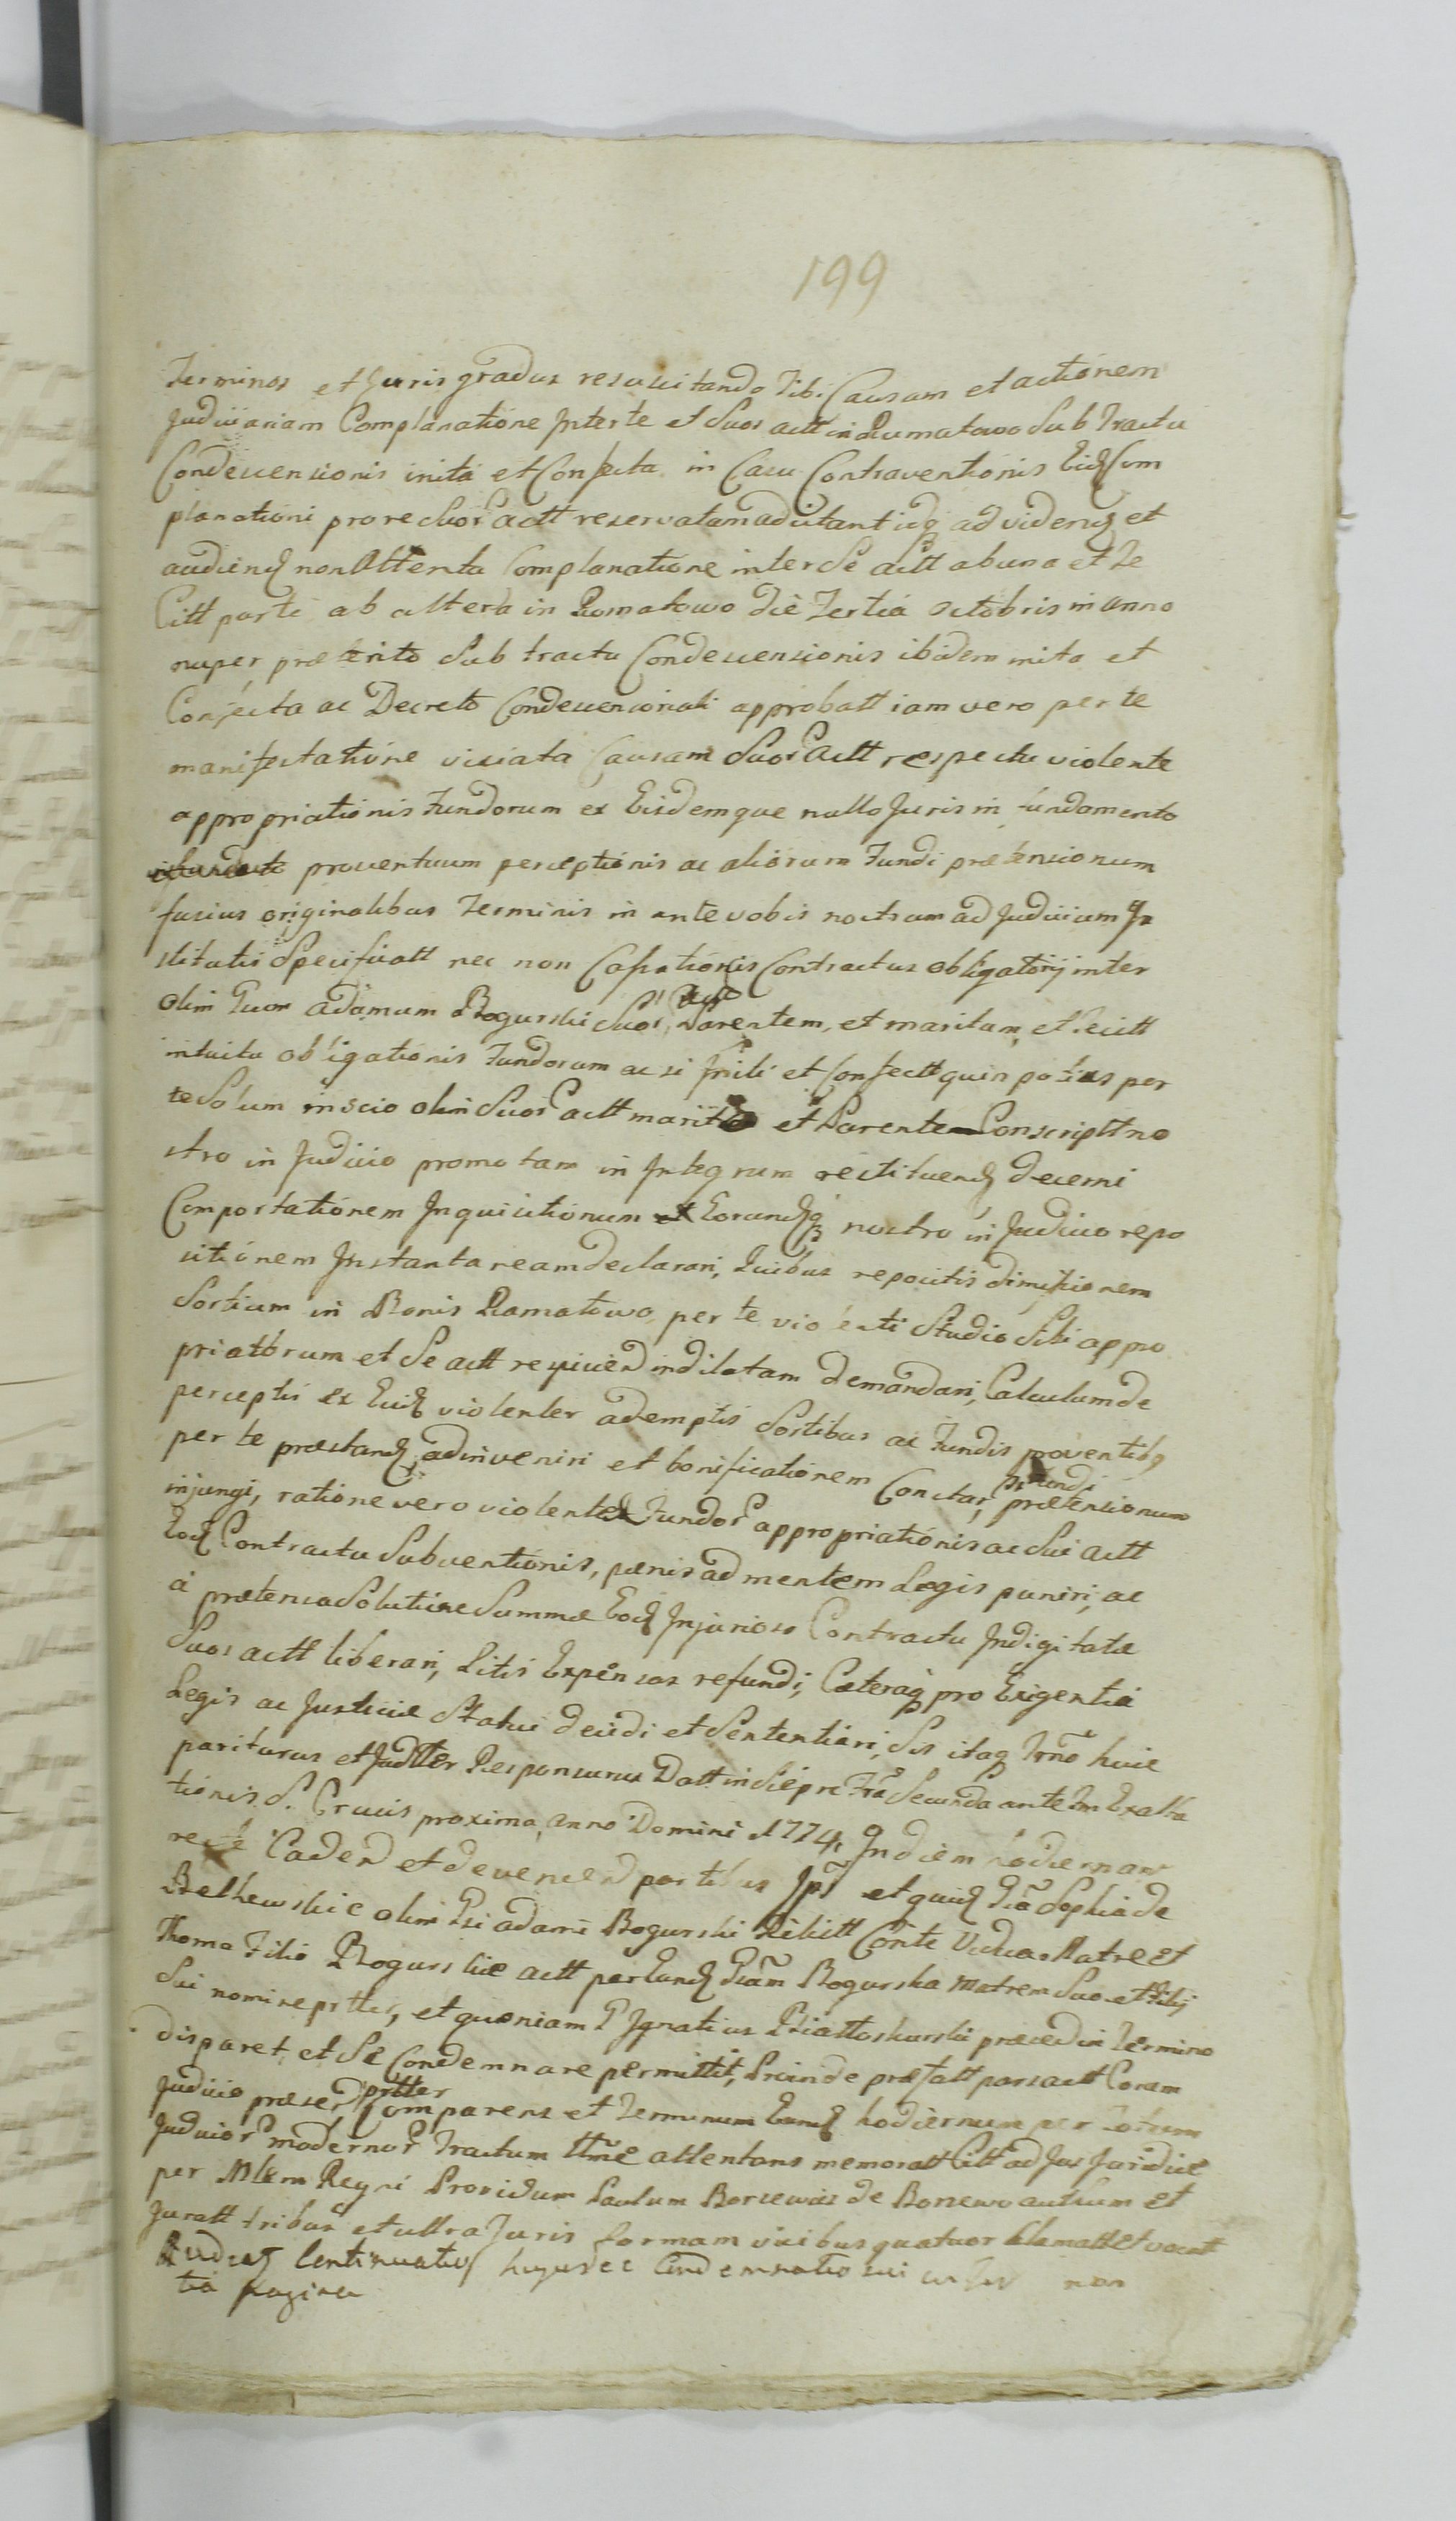 199
Terminos et Juris gradus resuscitando Tibi Causam et actionem
Judiciariam Complanatione Inter te et Suos actt in Rumatowo Sub Tractu
Condescensionis inita et Confecta in Casu Contraventionis Eid Com
planationi pro re Suor actt reservatam adcitant idq ad videnđ et
audienđ non Attenta Complanatione inter Se actt ab una et Te
Citt parte ab altera in Rumatowo die Tertia Octobris in anno
nuper præterito Sub tractu Condescensionis ibidem inita et
Confecta ac Decreto Condescensionali approbatt iam vero per te
manifestatione viciata Causam Suor actt respectu violentæ
appropriationis Fundorum ex Eisdemque nullo Juris in fundamento
proventuum perceptionis ac aliorum Fundi prætensionum
fusius originalibus Terminis in ante vobis nostrum ad Judicium In
stitutis Specificatt nec non Cassationis Contractus obligatorij inter
olim Gsum Adamum Bogurski Suor actt Parentem, et maritum, et Te Citt
intuitu obligationis Fundorum ac si Initi et Confectt quin potius per
te Solum inscio olim Suor actt marito et Parente Conscriptt no
stro in Judicio promotam in Integrum restituenđ decerni
Comportationem Inquisitionum et Eorunđq nostro in Judicio repo
sitionem Instantaneam declarari, Quibus repositis dimissionem
Sortium in Bonis Rumatowo per te violenti Studio Sibi appro
priatorum et Se actt respiciend indilatam demandari, Calculum de
perceptis ex Eisđ violenter ademptis Sortibus ac Fundis proventibq
per te præstanđ adinveniri et bonificationem Constar Fundi prætensionum
injungi, ratione vero violentæ Fundor appropriationis ac Sui actt
Eođ Contractu Subventionis, pænis ad mentem Legis puniri, ac
à prætensa Solutione Summæ Eođ Injurioso Contractu Indigitatæ
Suos actt liberari, Litis Expensas refundi, Cæteraq pro Exigentia
Legis ac Justiciæ Statui decidi et Sententiari, Sis itaq Trno huic
pariturus et Judtter Responsurus Datt in Sede pre Fra Secunda ante Fm Exalta
tionis S. Crucis proxima, anno Domini 1774. In diem hodiernam
recte Cadend et deveniend partibus Ipsi et quiđ Gsa Sophia de
olim Gsi Adami Bogurski Relictt Conte Vidua Matre et
Thoma Filio Bogurskie actt per Eanđ Gsam Bogurska Matrem Suo et Filij
Sui nomine prtter, et quoniam G Ignatius præsed in Termino
disparet, et Se Condemnare permittit, Proinde præfatt pars actt Coram
Judicio præsed prtter Comparens et Terminum Eunđ hodiernum per Totum
Judicior modernor Tractum ttme attentans memoratt Citt ad Jus Juridice
per Mlem Regni Providum Paulum Borzewicz de Borzewo authum et
Juratt tribus et ultra Juris formam vicibus quatuor Clamatt et vocatt
hujusce Condemnatio sui non
pagina